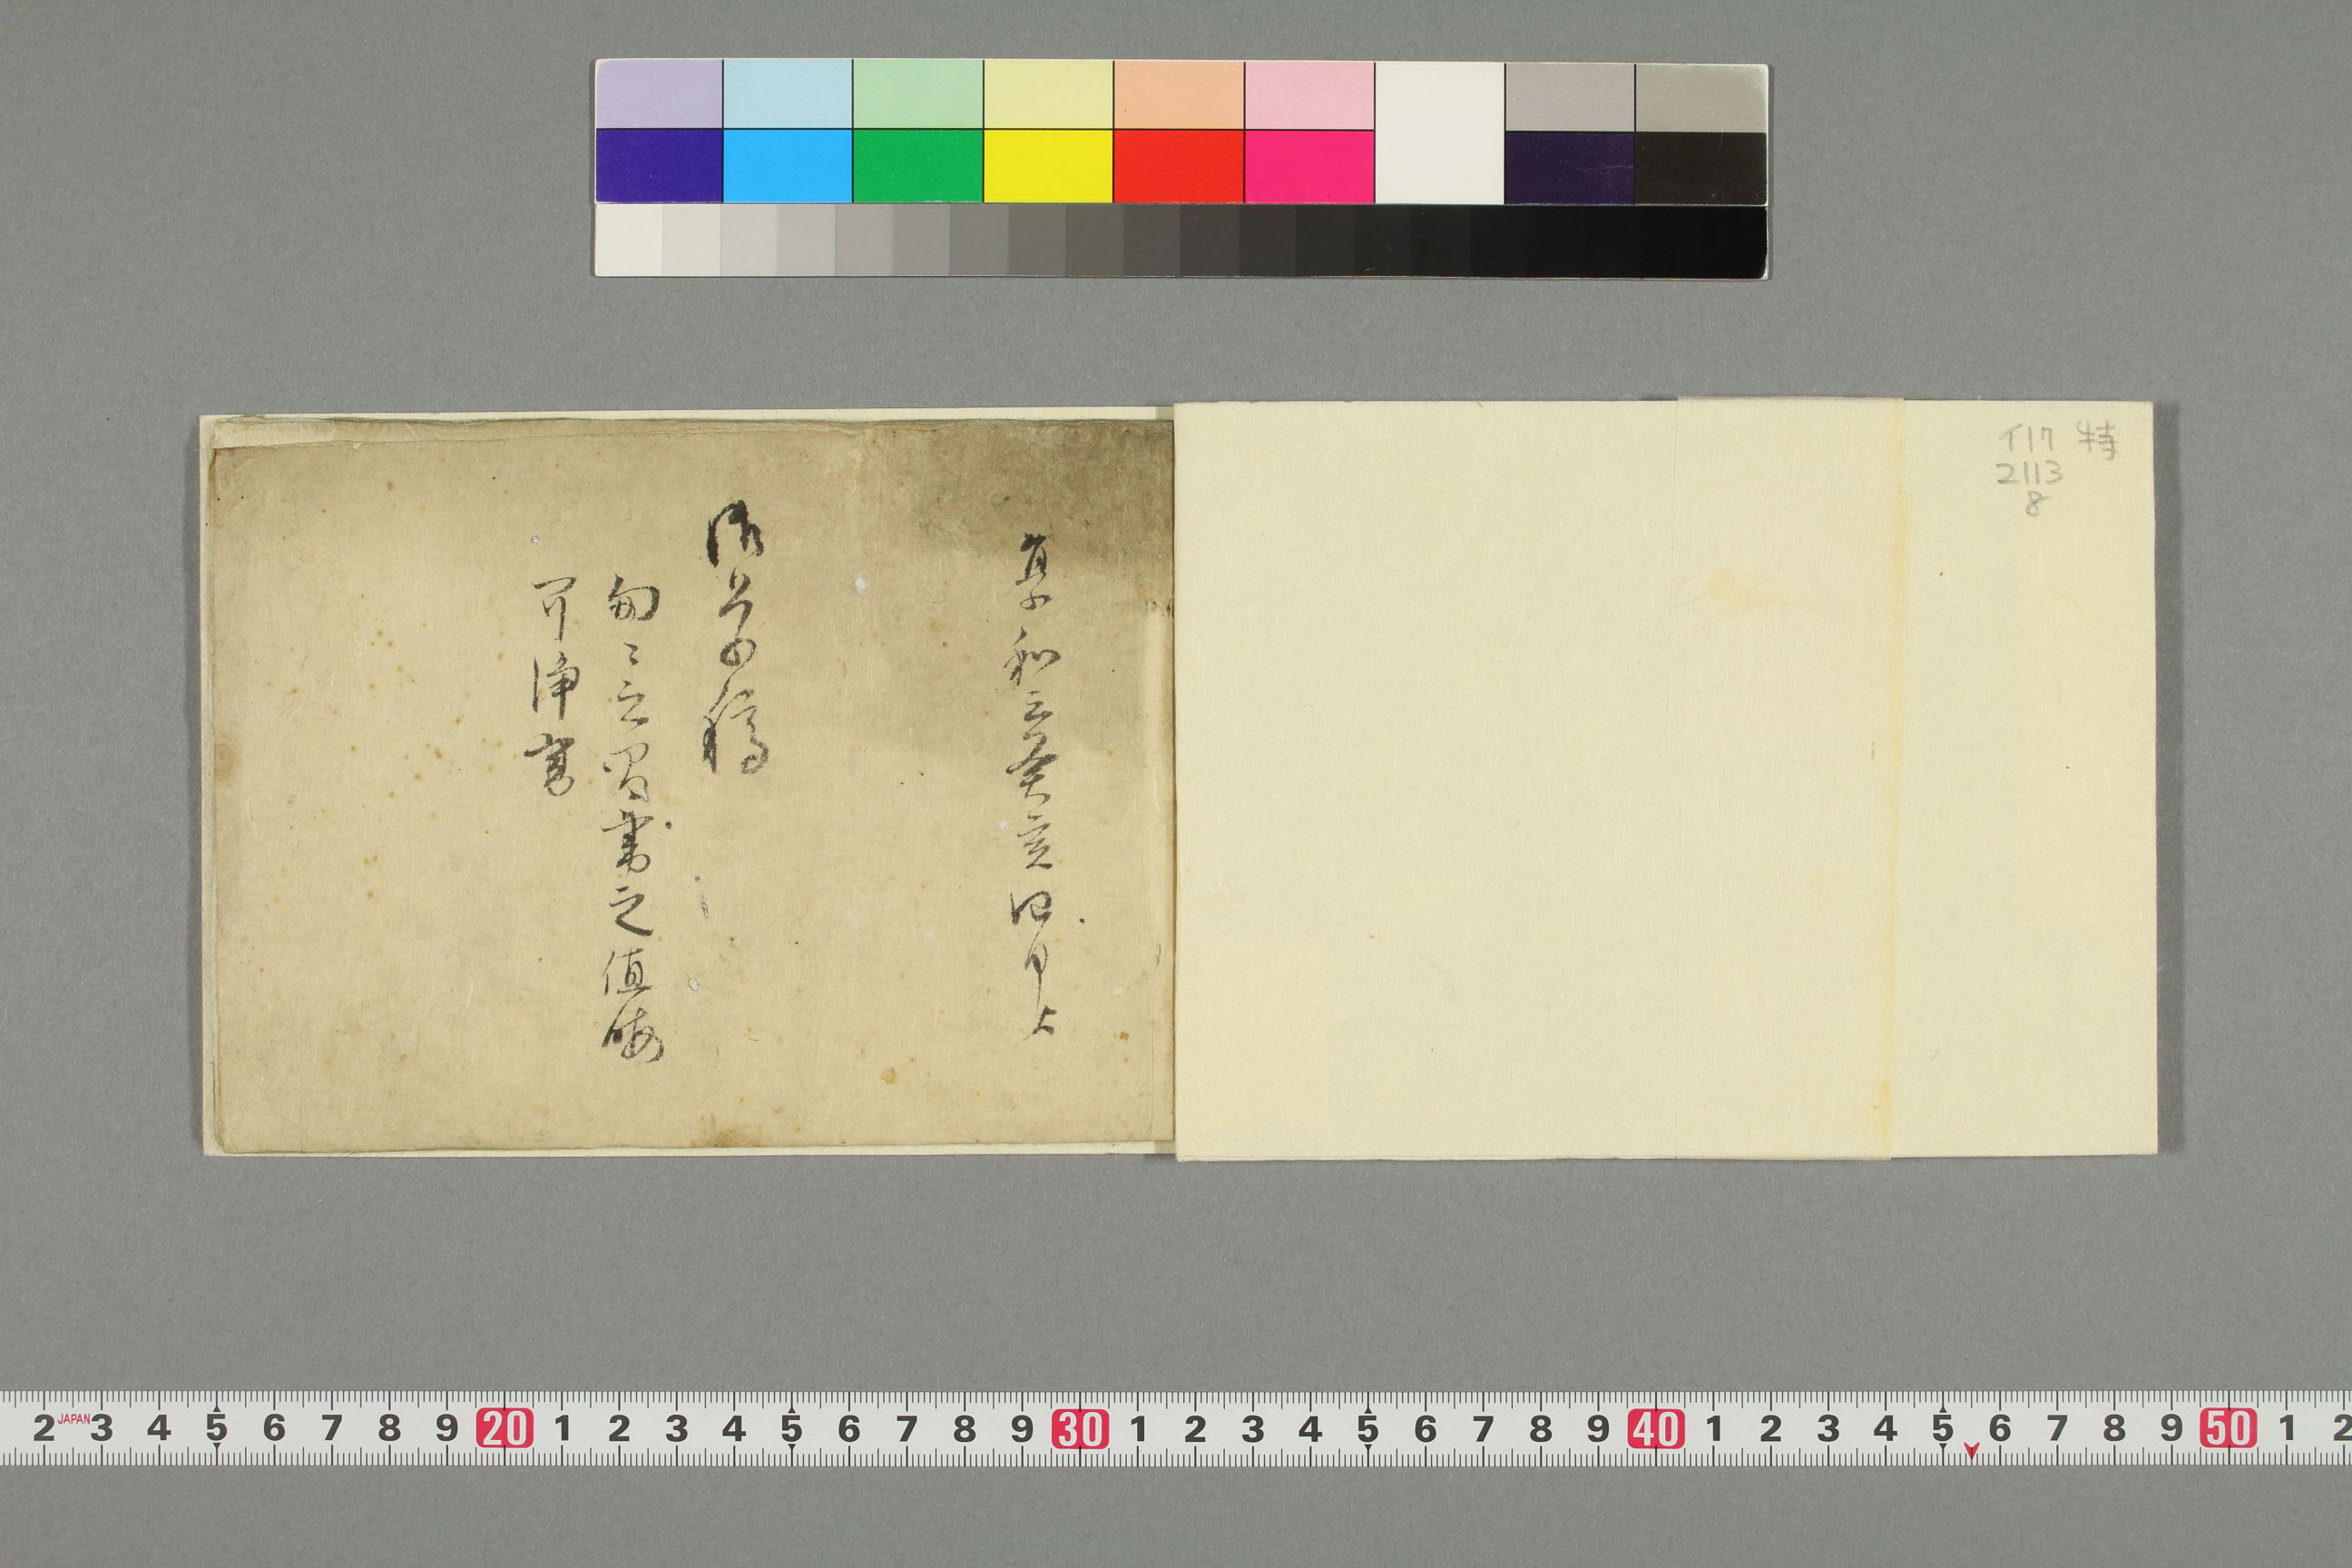 特
イ17
2113
8
享和三癸亥四月上
御草稿
匆々立習書之値晦
可浄写
2 JAPAN 3 4 5 6 7 8 9 20 1 2 3 4 5 6 7 8 9 30 1 2 3 4 5 6 7 8 9 40 1 2 3 4 5 6 7 8 9 50 1 2